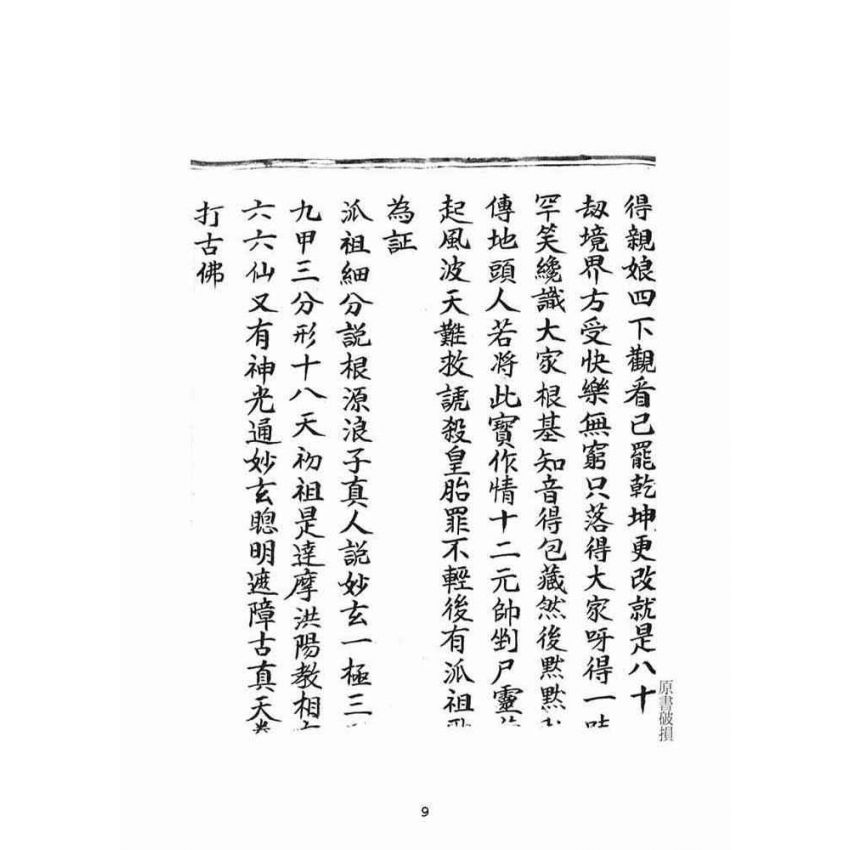 得親娘四下觀看已罷乾坤更改就是八十
刼境界方受快樂無窮只落得大家呀得一
罕笑纔識大家根基知音得包藏然後默默
傳地頭人若將此寶作情十二元帥剉尸靈
起風波天難救諕殺皇胎罪不輕後有派祖
為証
派祖細分説根源浪子真人説妙玄一極三
九甲三分形十八天初祖是達摩洪陽教相
六六仙又有神光通妙玄聰明遮障古真天
打古佛
原書破損
9